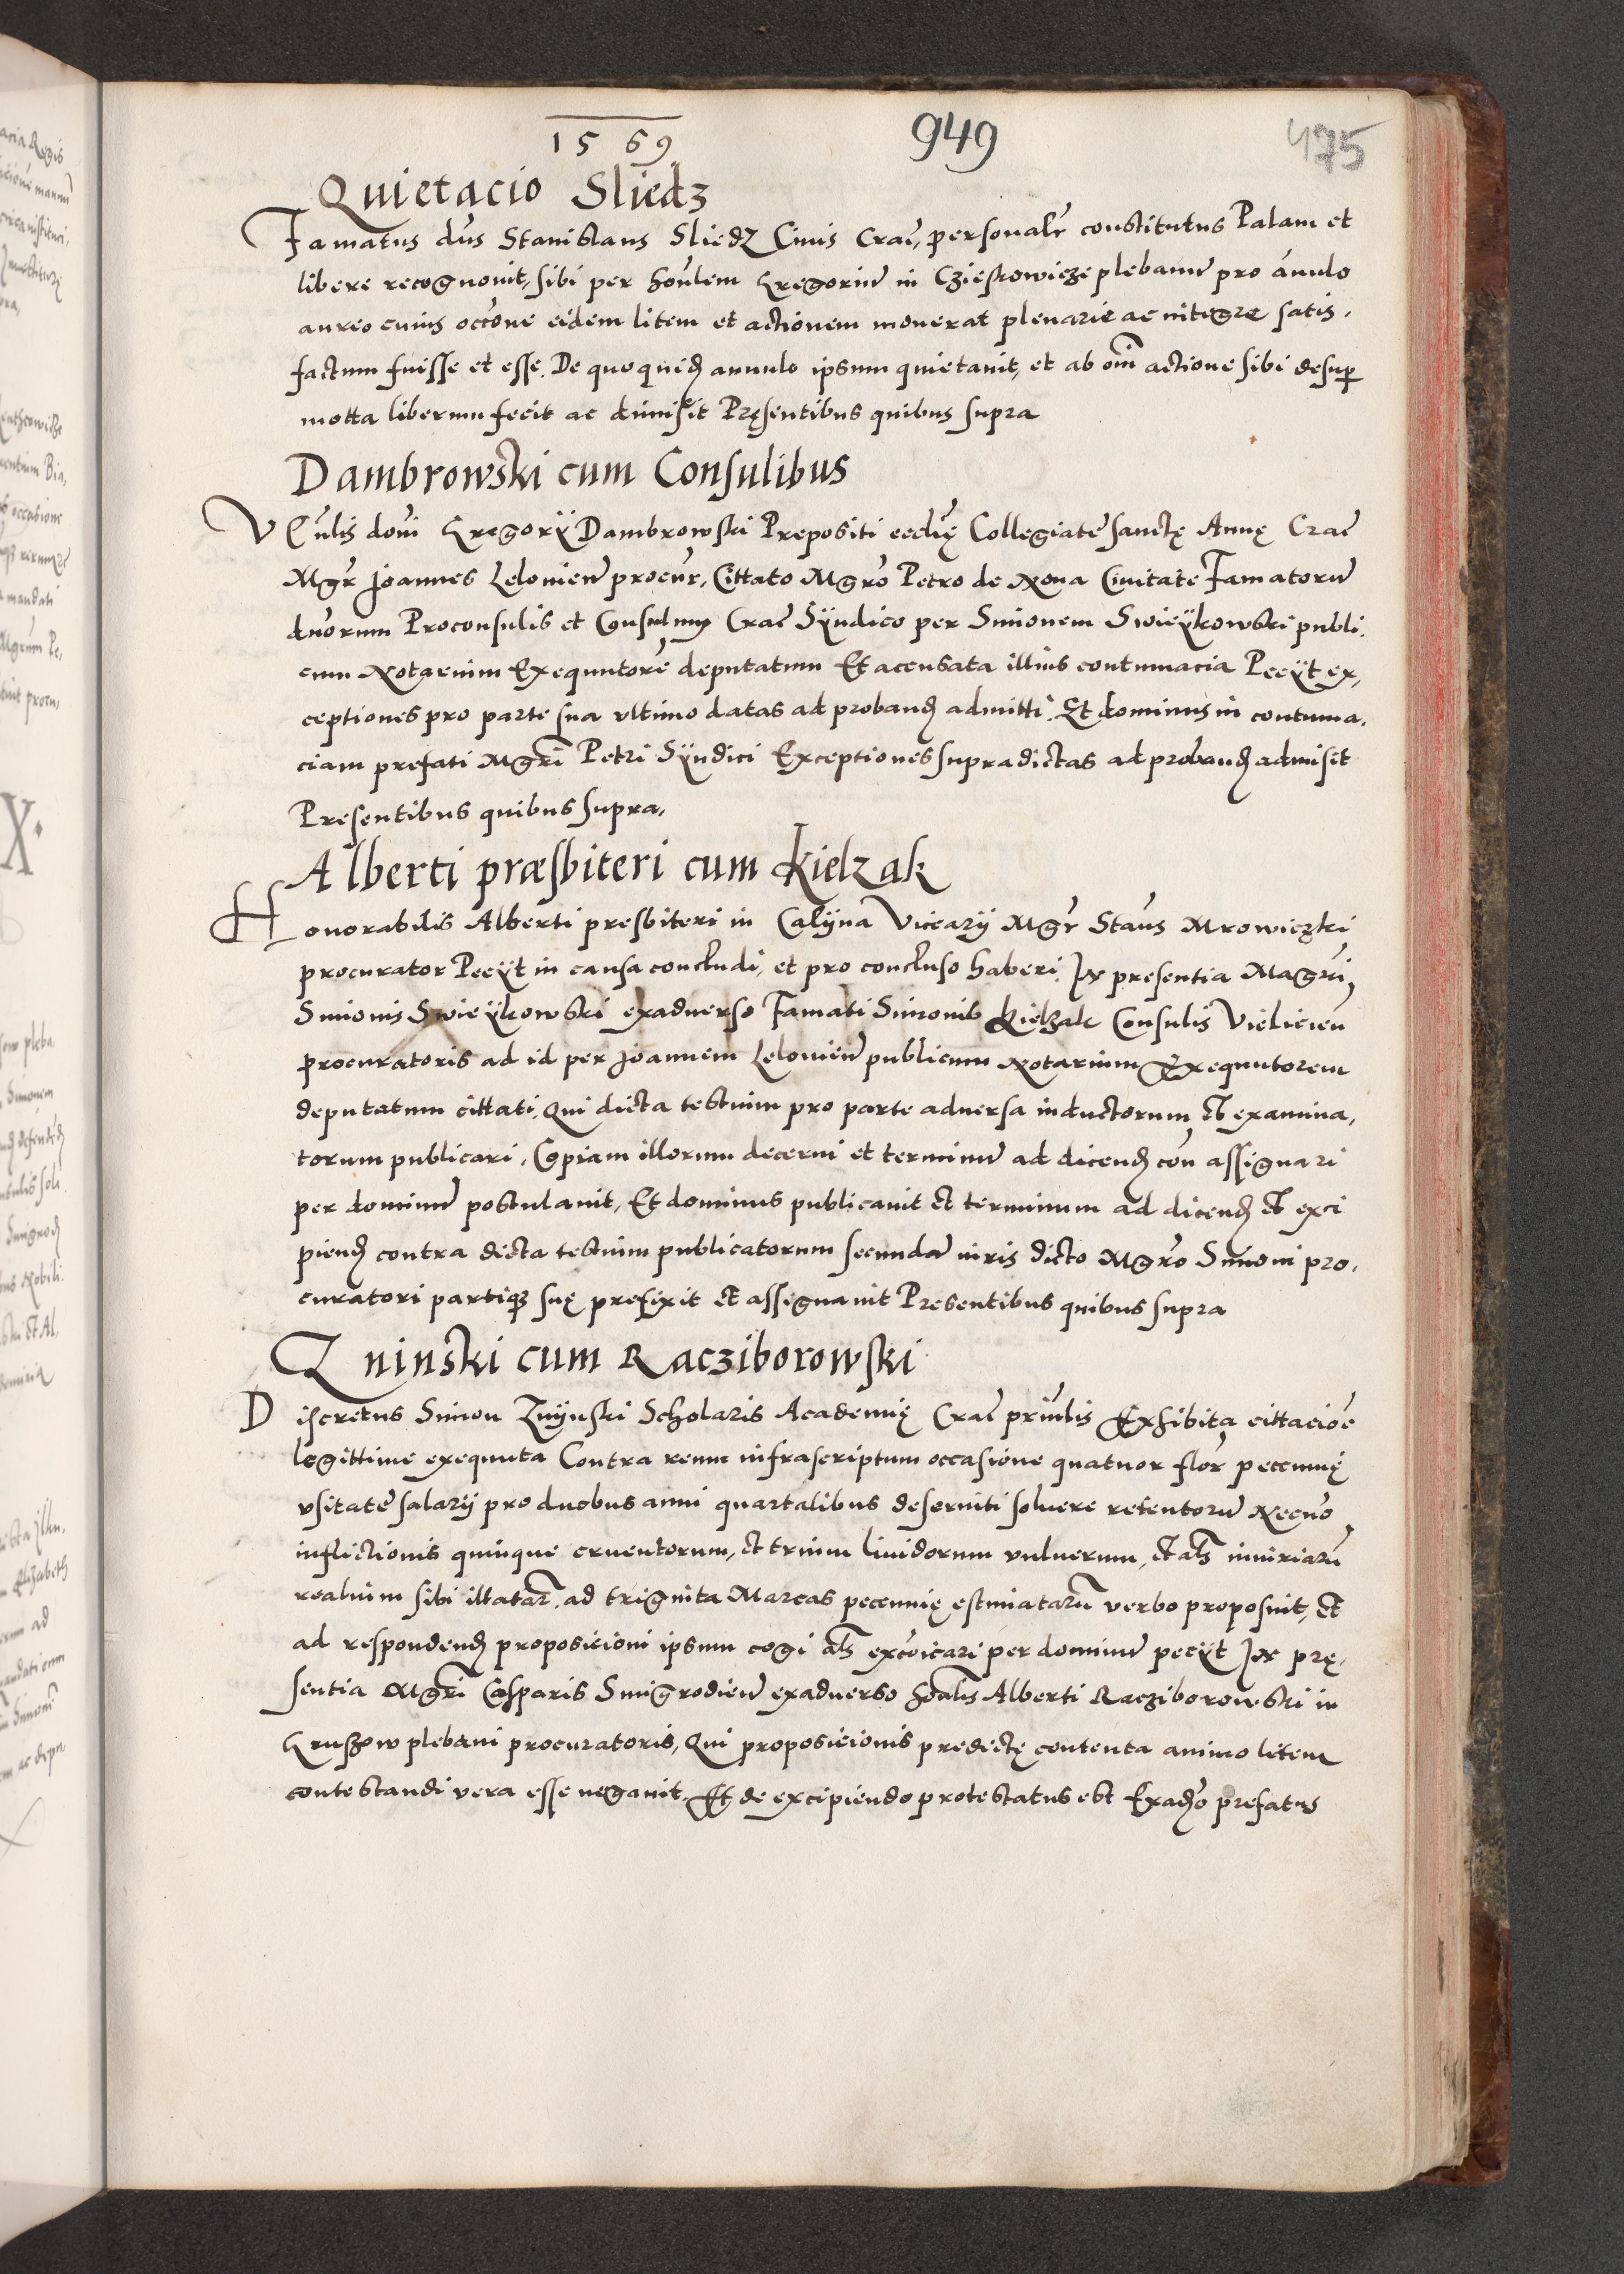 1569 949 475
Quietacio Sliedz
Famatus dūs Stanislaus Sliedz Ciuis Crac̄, personalr̄ constitutus Palam et
libere recognouit, sibi per honl̄em Gregoriū in plebanū pro anulo
aureo cuius occōne eidem litem et actionem mouerat plenarie ac integre satis,
factum fuisse et esse. De quo quid annulo ipsum quietauit, et ab om̄i actione sibi desup
motta liberum fecit ac dimisit Pręsentibus quibus supra
Dambrowski cum Consulibus
Vn̄lis dōni Gregorÿ Dambrowski Prepositi ecclīę Collegiate sanctę Annę Crac̄
Mgr̄ Joannes Lelouien̄ procur̄, Cittato Mgrō Petro de Noua Ciuitate Famatorū
dn̄orum Proconsulis et Consulum Crac̄ Sÿndico per Simonem Swieÿkowski publi,
cum Notarium Exequutorē deputatum Et accusata illius contumacia Pecÿt ex,
ceptiones pro parte sua vltimo datas ad proband admitti. Et dominus in contuma,
ciam prefati Mgrī Petri Sÿndici Exceptiones supradictas ad proband admisit
Presentibus quibus supra,
Alberti præsbiteri cum Kielzak
Honorabilis Alberti presbiteri in Calÿna Vicarÿ Mgr̄ Staūs Mrowiczki
procurator Pecÿt in causa concludi, et pro concluso haberi. In presentia Magrī
Simonis Swieÿkowski exaduerso Famati Simonis Kielzak Consulis Vielicien̄
procuratoris ad id per Joannem Lelouien̄ publicum Notarium Exequutorem
deputatum cittati, Qui dicta testium pro parte aduersa inductorum et examina,
torum publicari, Copiam illorum decerni et terminū ad dicend con̄ assignari
per dominū postulauit, Et dominus publicauit et terminum ad dicend et exci
piend contra dicta testium publicatorum secundā iuris dicto Mgrō Simoni pro,
curatori partiq suę prefixit et assignauit Presentibus quibus supra
Zninski cum Racziborowski
Discretus Simon Znÿnski Scholaris Academię Crac̄ prīnlis Exhibita cittaciōe
legittime exequuta Contra reum infrascriptum occasione quatuor flor̄ pecunię
vsitatē salarÿ pro duobus anni quartalibus deseruiti soluere retentorū Necnō
inflictionis quinque cruentorum, et trium liuidorum vulnerum, et al̄s iniuriarū
realium sibi illatar̄, ad triginta Marcas pecunię estimatarū verbo proposuit, et
ad respondend proposicioni ipsum cogi al̄s excōicari per dominū pecÿt In prę,
sentia Mgrī Casparis Smigrodien̄ exaduerso hōnalis Alberti Racziborowski in
Gruszow plebani procuratoris, Qui proposicionis predictę contenta animo litem
contestandi vera esse negauit. Et de excipiendo protestatus est Exadūo prefatus